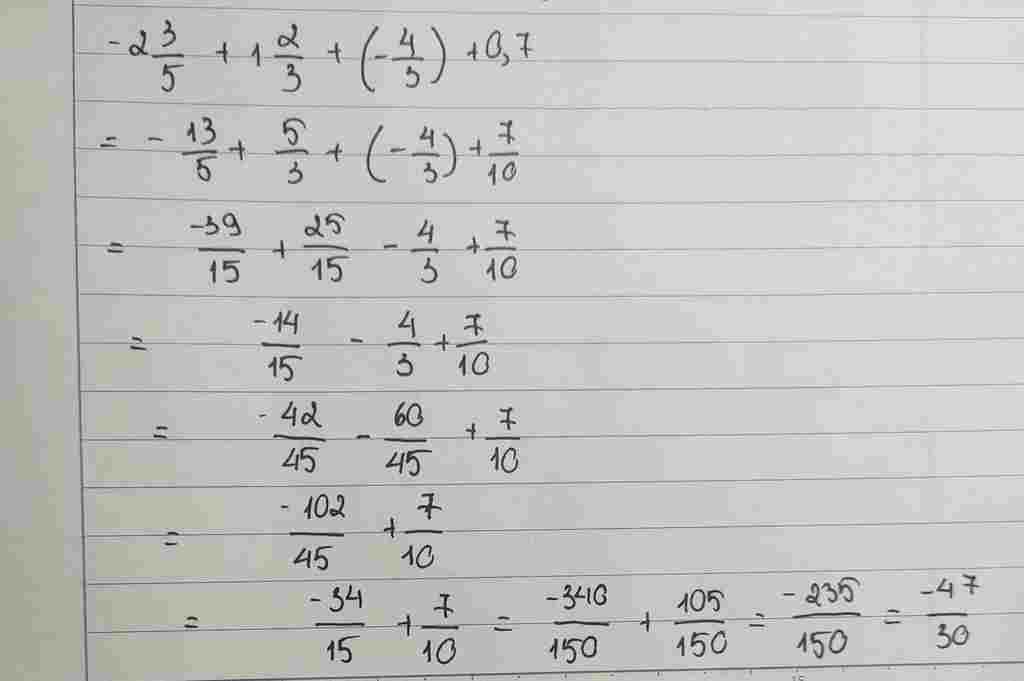 -2 3/5 + 1 2/3 + (-4/3) + 0,7
= -13/5 + 5/3 + (-4/3) + 7/10
= -39/15 + 25/15 - 4/3 + 7/10
= -14/15 - 4/3 + 7/10
= -42/45 - 60/45 + 7/10
= -102/45 + 7/10
= -34/15 + 7/10 = -340/150 + 105/150 = -235/150 = -47/30